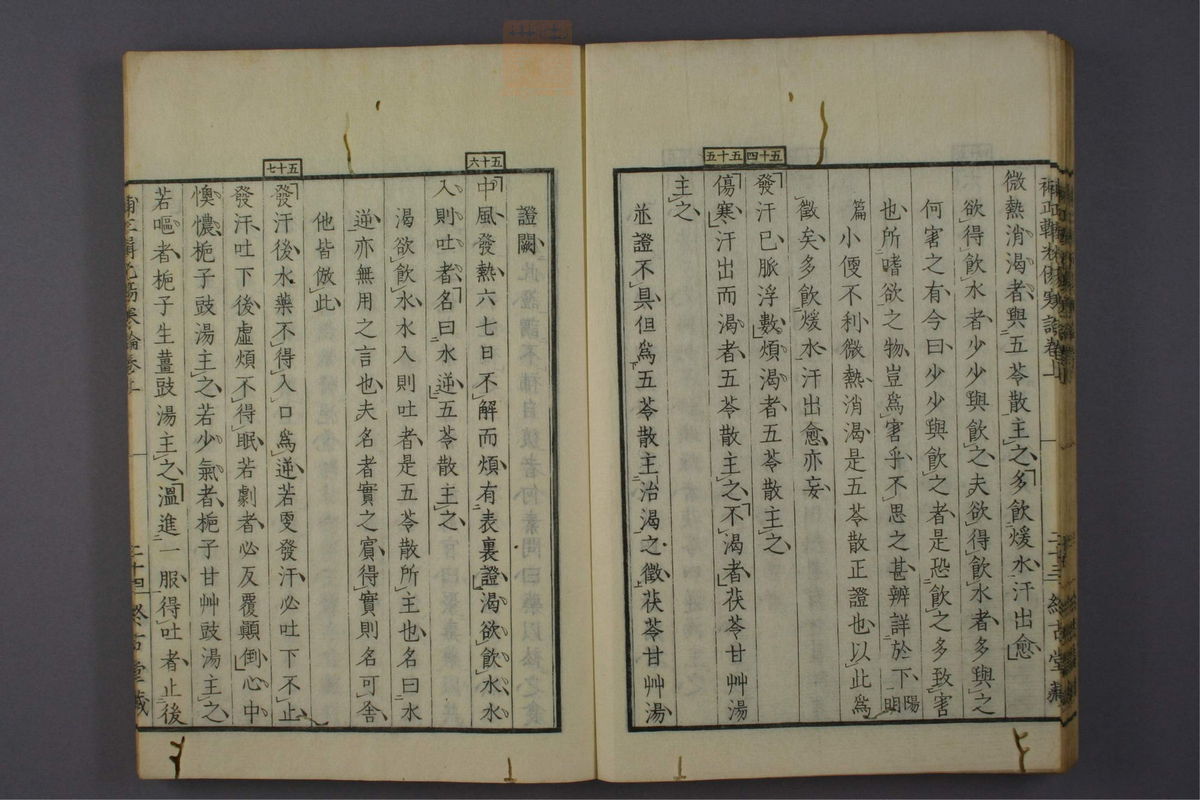 補正輯光傷寒論卷上
二十三
微熱消渴者與五苓散主之多飲煖水汗出愈
欲得飲水者少少與飲之夫欲得飲水者多與之
何害之有今曰少少與飲之者是恐飲之多致害
也所嗜欲之物豈爲害乎不思之甚辨詳於下陽明
篇小便不利微熱消渴是五苓散正證也以此爲
徵矣多飲煖水汗出愈亦妄
五十四
發汗已脈浮數煩渴者五苓散主之
五十五
傷寒汗出而渴者五苓散主之不渴者茯苓甘艸湯
主之
並證不具但爲五苓散主治渴之徵茯苓甘艸湯
證闕
五十六
中風發熱六七日不解而煩有表裏證渴欲飲水水
入則吐者名曰水逆五苓散主之
渴欲飲水水入則吐者是五苓散所主也名曰水
逆亦無用之言也夫名者實之賓得實則名可舍
他皆倣此
五十七
發汗後水藥不得入口爲逆若更發汗必吐下不止
發汗吐下後虛煩不得眠若劇者必反覆顚倒心中
懊憹梔子豉湯主之若少氣者梔子甘艸豉湯主之
若嘔者梔子生薑豉湯主之溫進一服得吐者止後
二十四